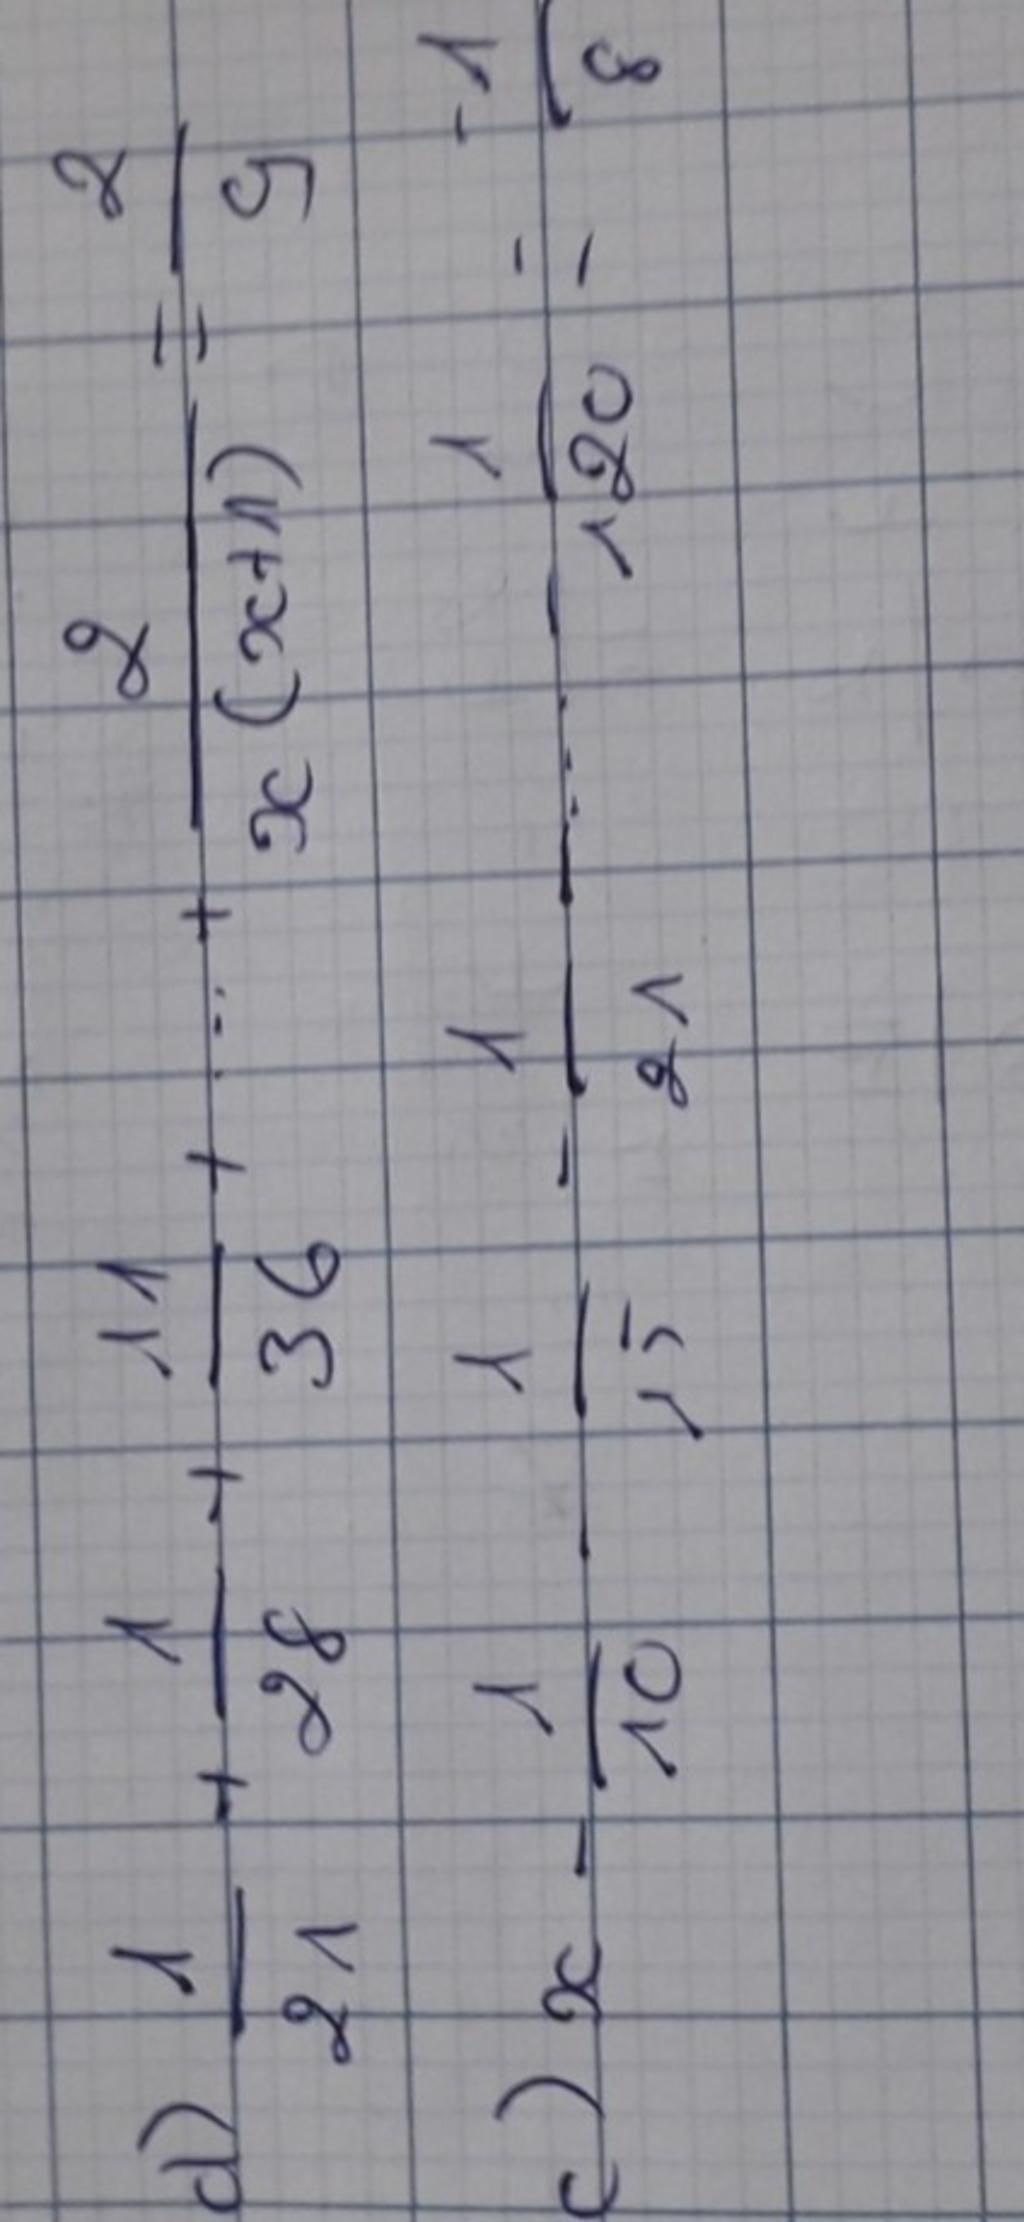 d) 1/21 + 1/28 + 11/36 + ... + 2/x(x+1) = 2/9
c) x - 1/10 - 1/15 - 1/21 - ... - 1/120 = -1/8